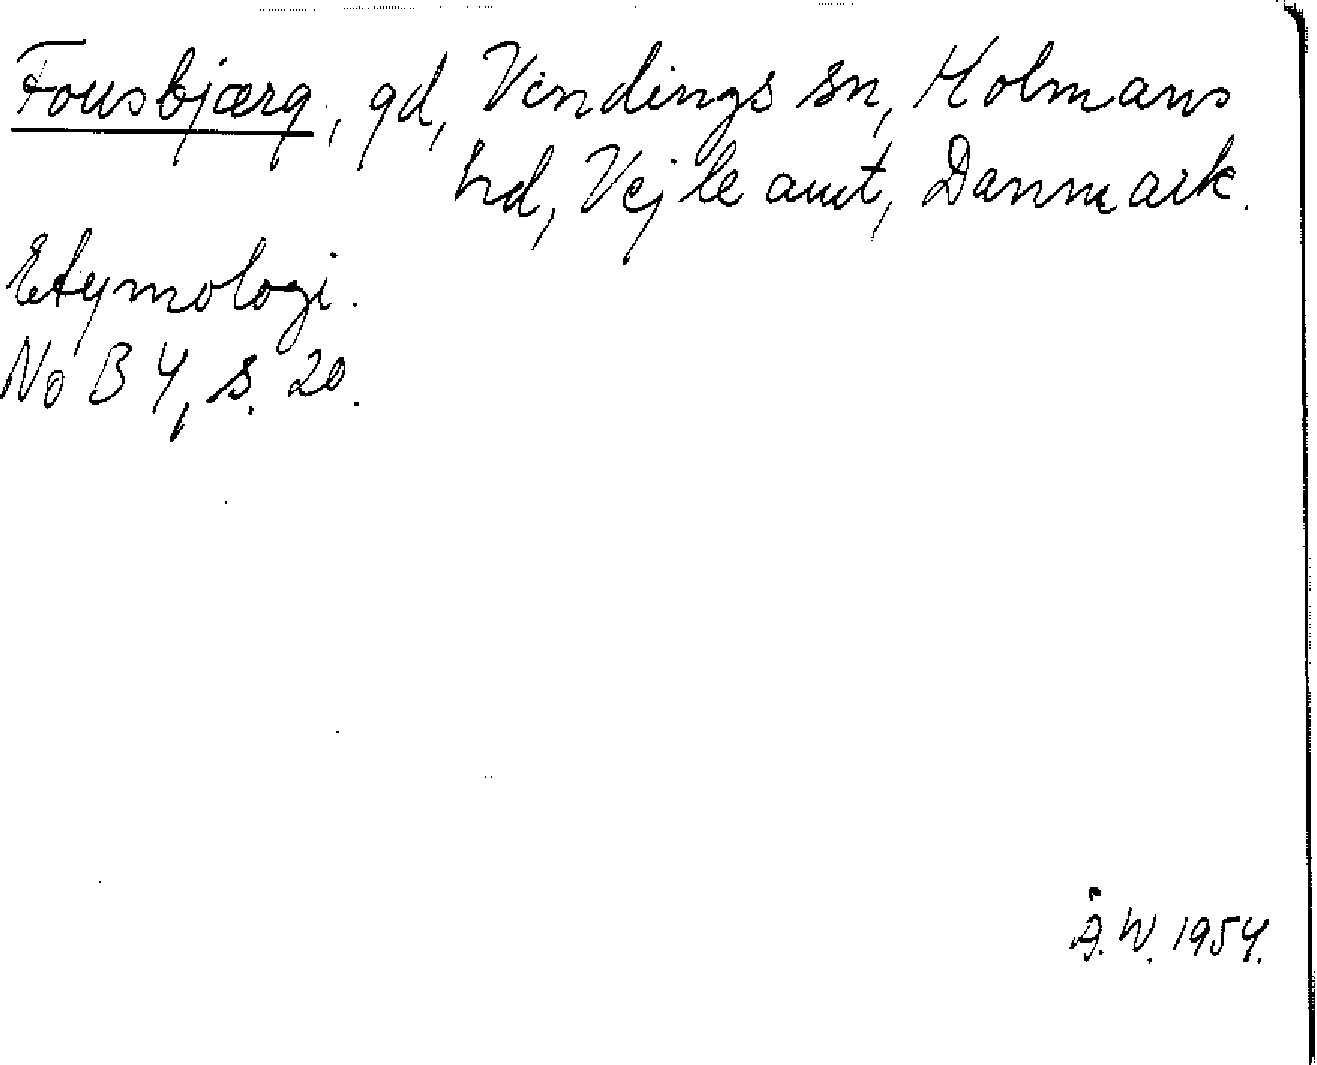 Fousbjærg, gd, Vindings sn, Holmans
hd, Vejle amt, Danmark.
Etymologi.
NoB 4, s. 20.
Å.W. 1954.